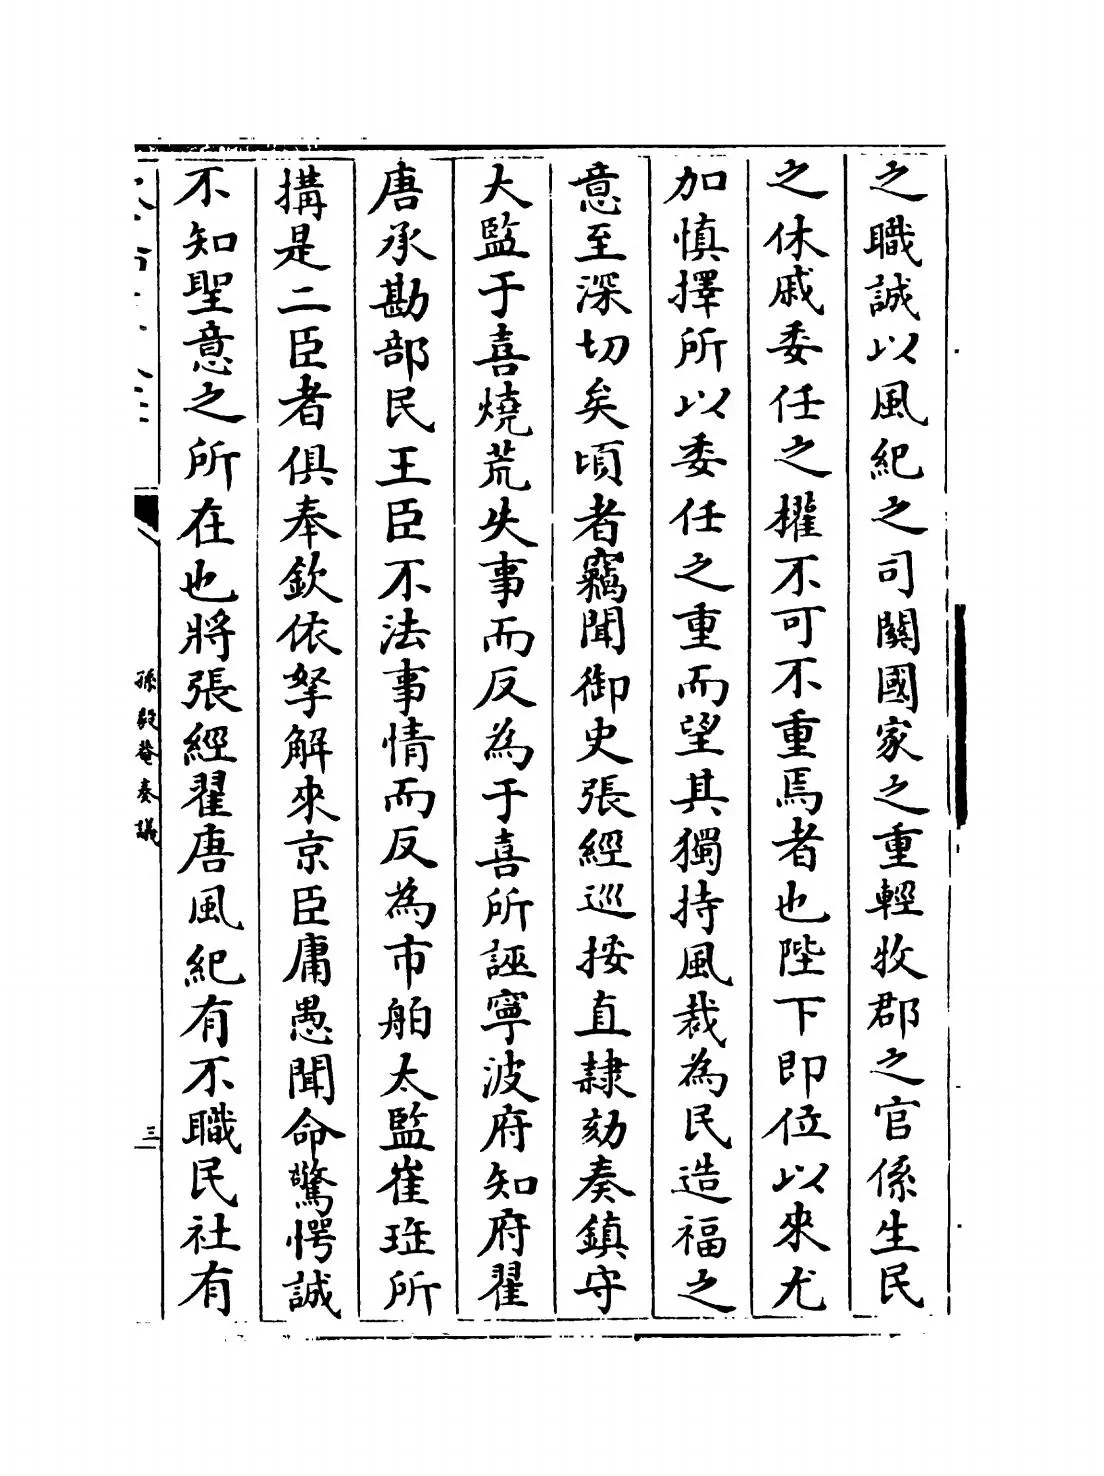 之職誠以風紀之司關國家之重輕牧郡之官係生民
之休戚委任之擢不可不重焉者也陛下即位以來尤
加慎擇所以委任之重而望其獨持風裁為民造福之
意至深切矣頃者竊聞御史張經巡按直隸劾奏鎮守
大監于喜燒荒失事而反為于喜所誣寧波府知府翟
唐承勘部民王臣不法事情而反為市舶太監崔珤所
搆是二臣者俱奉欽依拏解來京臣庸愚聞命驚愕誠
不知聖意之所在也將張經翟唐風紀有不職民社有
孫毅菴奏議
三